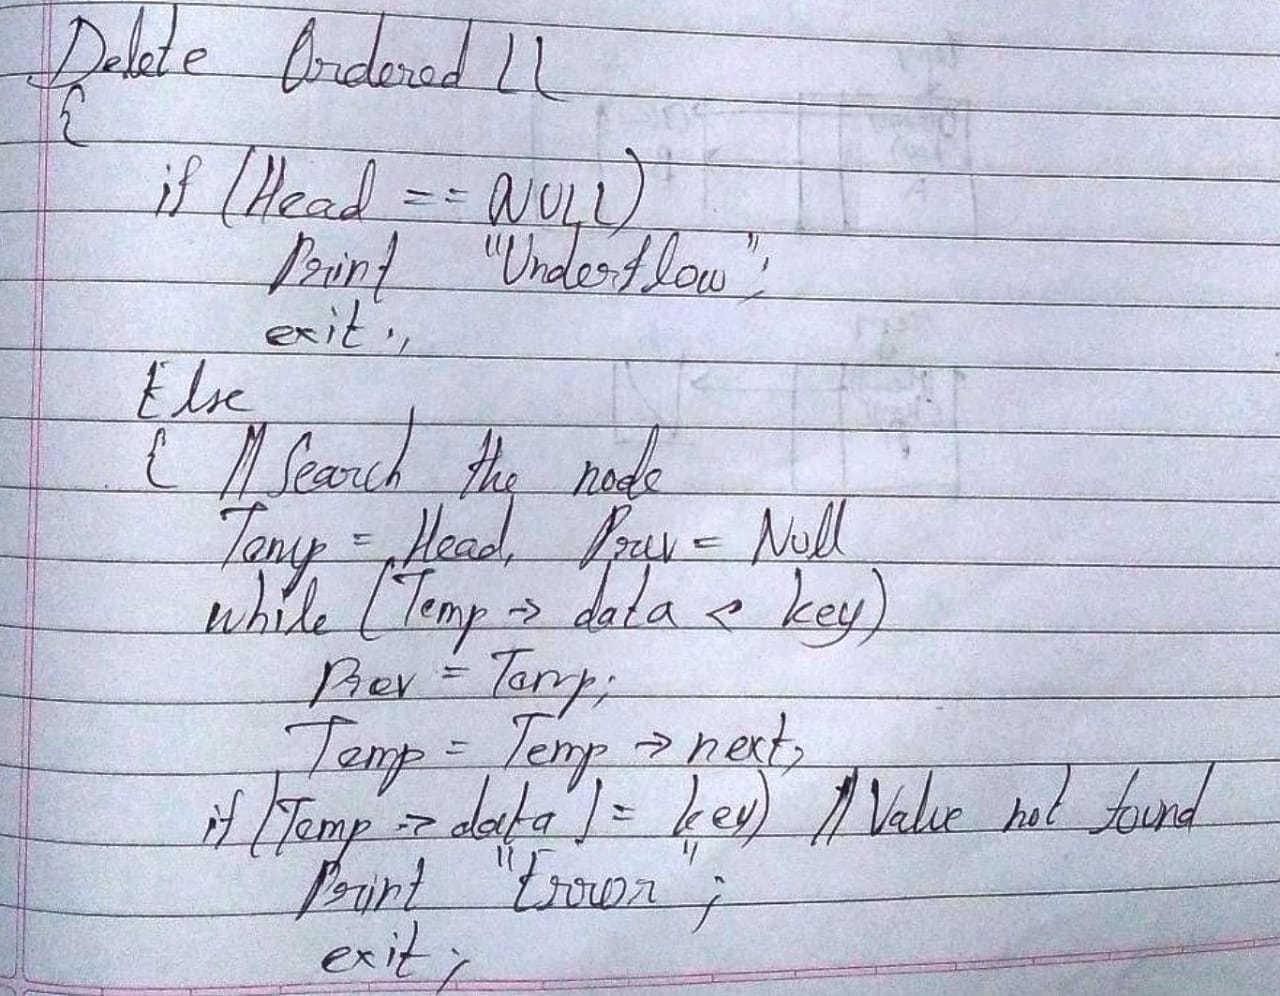 Delete Ordered LL
{
if (Head == NULL)
Print "Underflow";
exit;
Else
{ // Search the node
Temp = Head, Prev = Null
while (Temp → data < key)
Prev = Temp;
Temp = Temp → next;
if (Temp → data != key) // Value not found
Print "Error";
exit;